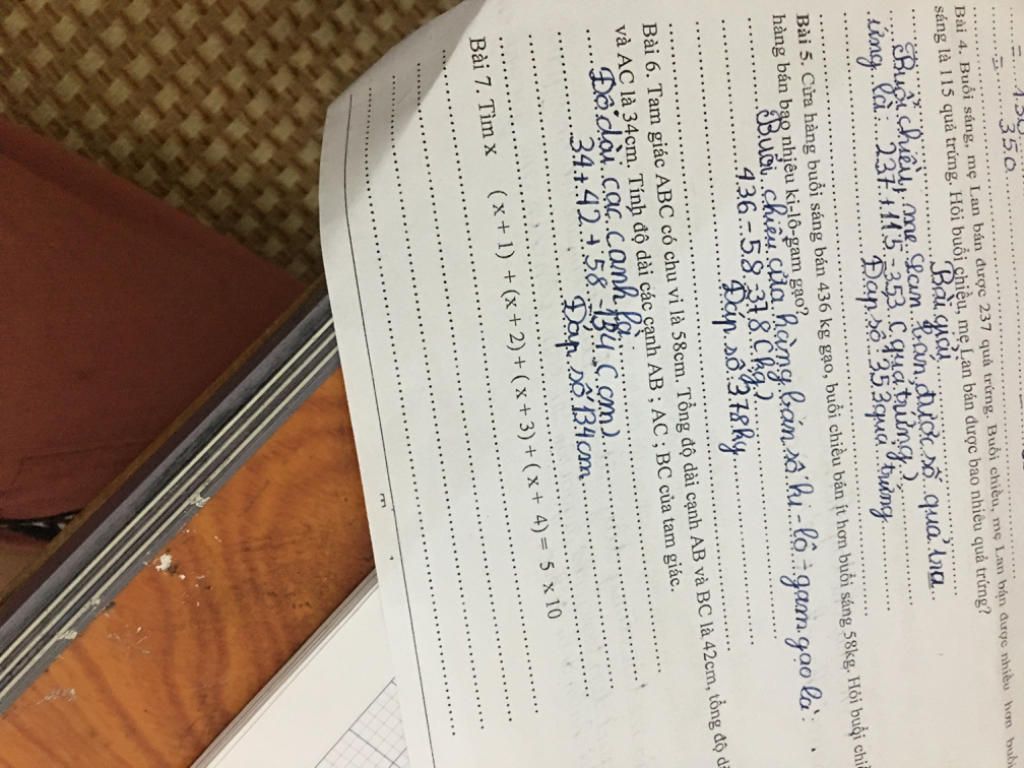 = 350
Bài 4. Buổi sáng, mẹ Lan bán được 237 quả trứng. Buổi chiều, mẹ Lan bán được nhiều hơn buổi
sáng là 115 quả trứng. Hỏi buổi chiều, mẹ Lan bán được bao nhiêu quả trứng?
Bài giải
Buổi chiều, mẹ Lan bán được số quả trứ
ứng là: 237 + 115 = 353 ( quả trứng )
Đáp số: 353 quả trứng
Bài 5. Cửa hàng buổi sáng bán 436 kg gạo, buổi chiều bán ít hơn buổi sáng 58kg. Hỏi buổi
hàng bán bao nhiêu ki-lô-gam gạo?
Buổi chiều cửa hàng bán số ki-lô-gam gạo là:
436 - 58 = 378 ( kg )
Đáp số 378kg
Bài 6. Tam giác ABC có chu vi là 58cm. Tổng độ dài cạnh AB và BC là 42cm, tổng độ
và AC là 34cm. Tính độ dài các cạnh AB ; AC ; BC của tam giác.
Độ dài các cạnh là
34 + 42 + 58 = 134 ( cm )
Đáp số 134cm
Bài 7. Tìm x ( x + 1) + (x + 2) + ( x + 3) + ( x + 4) = 5 x 10